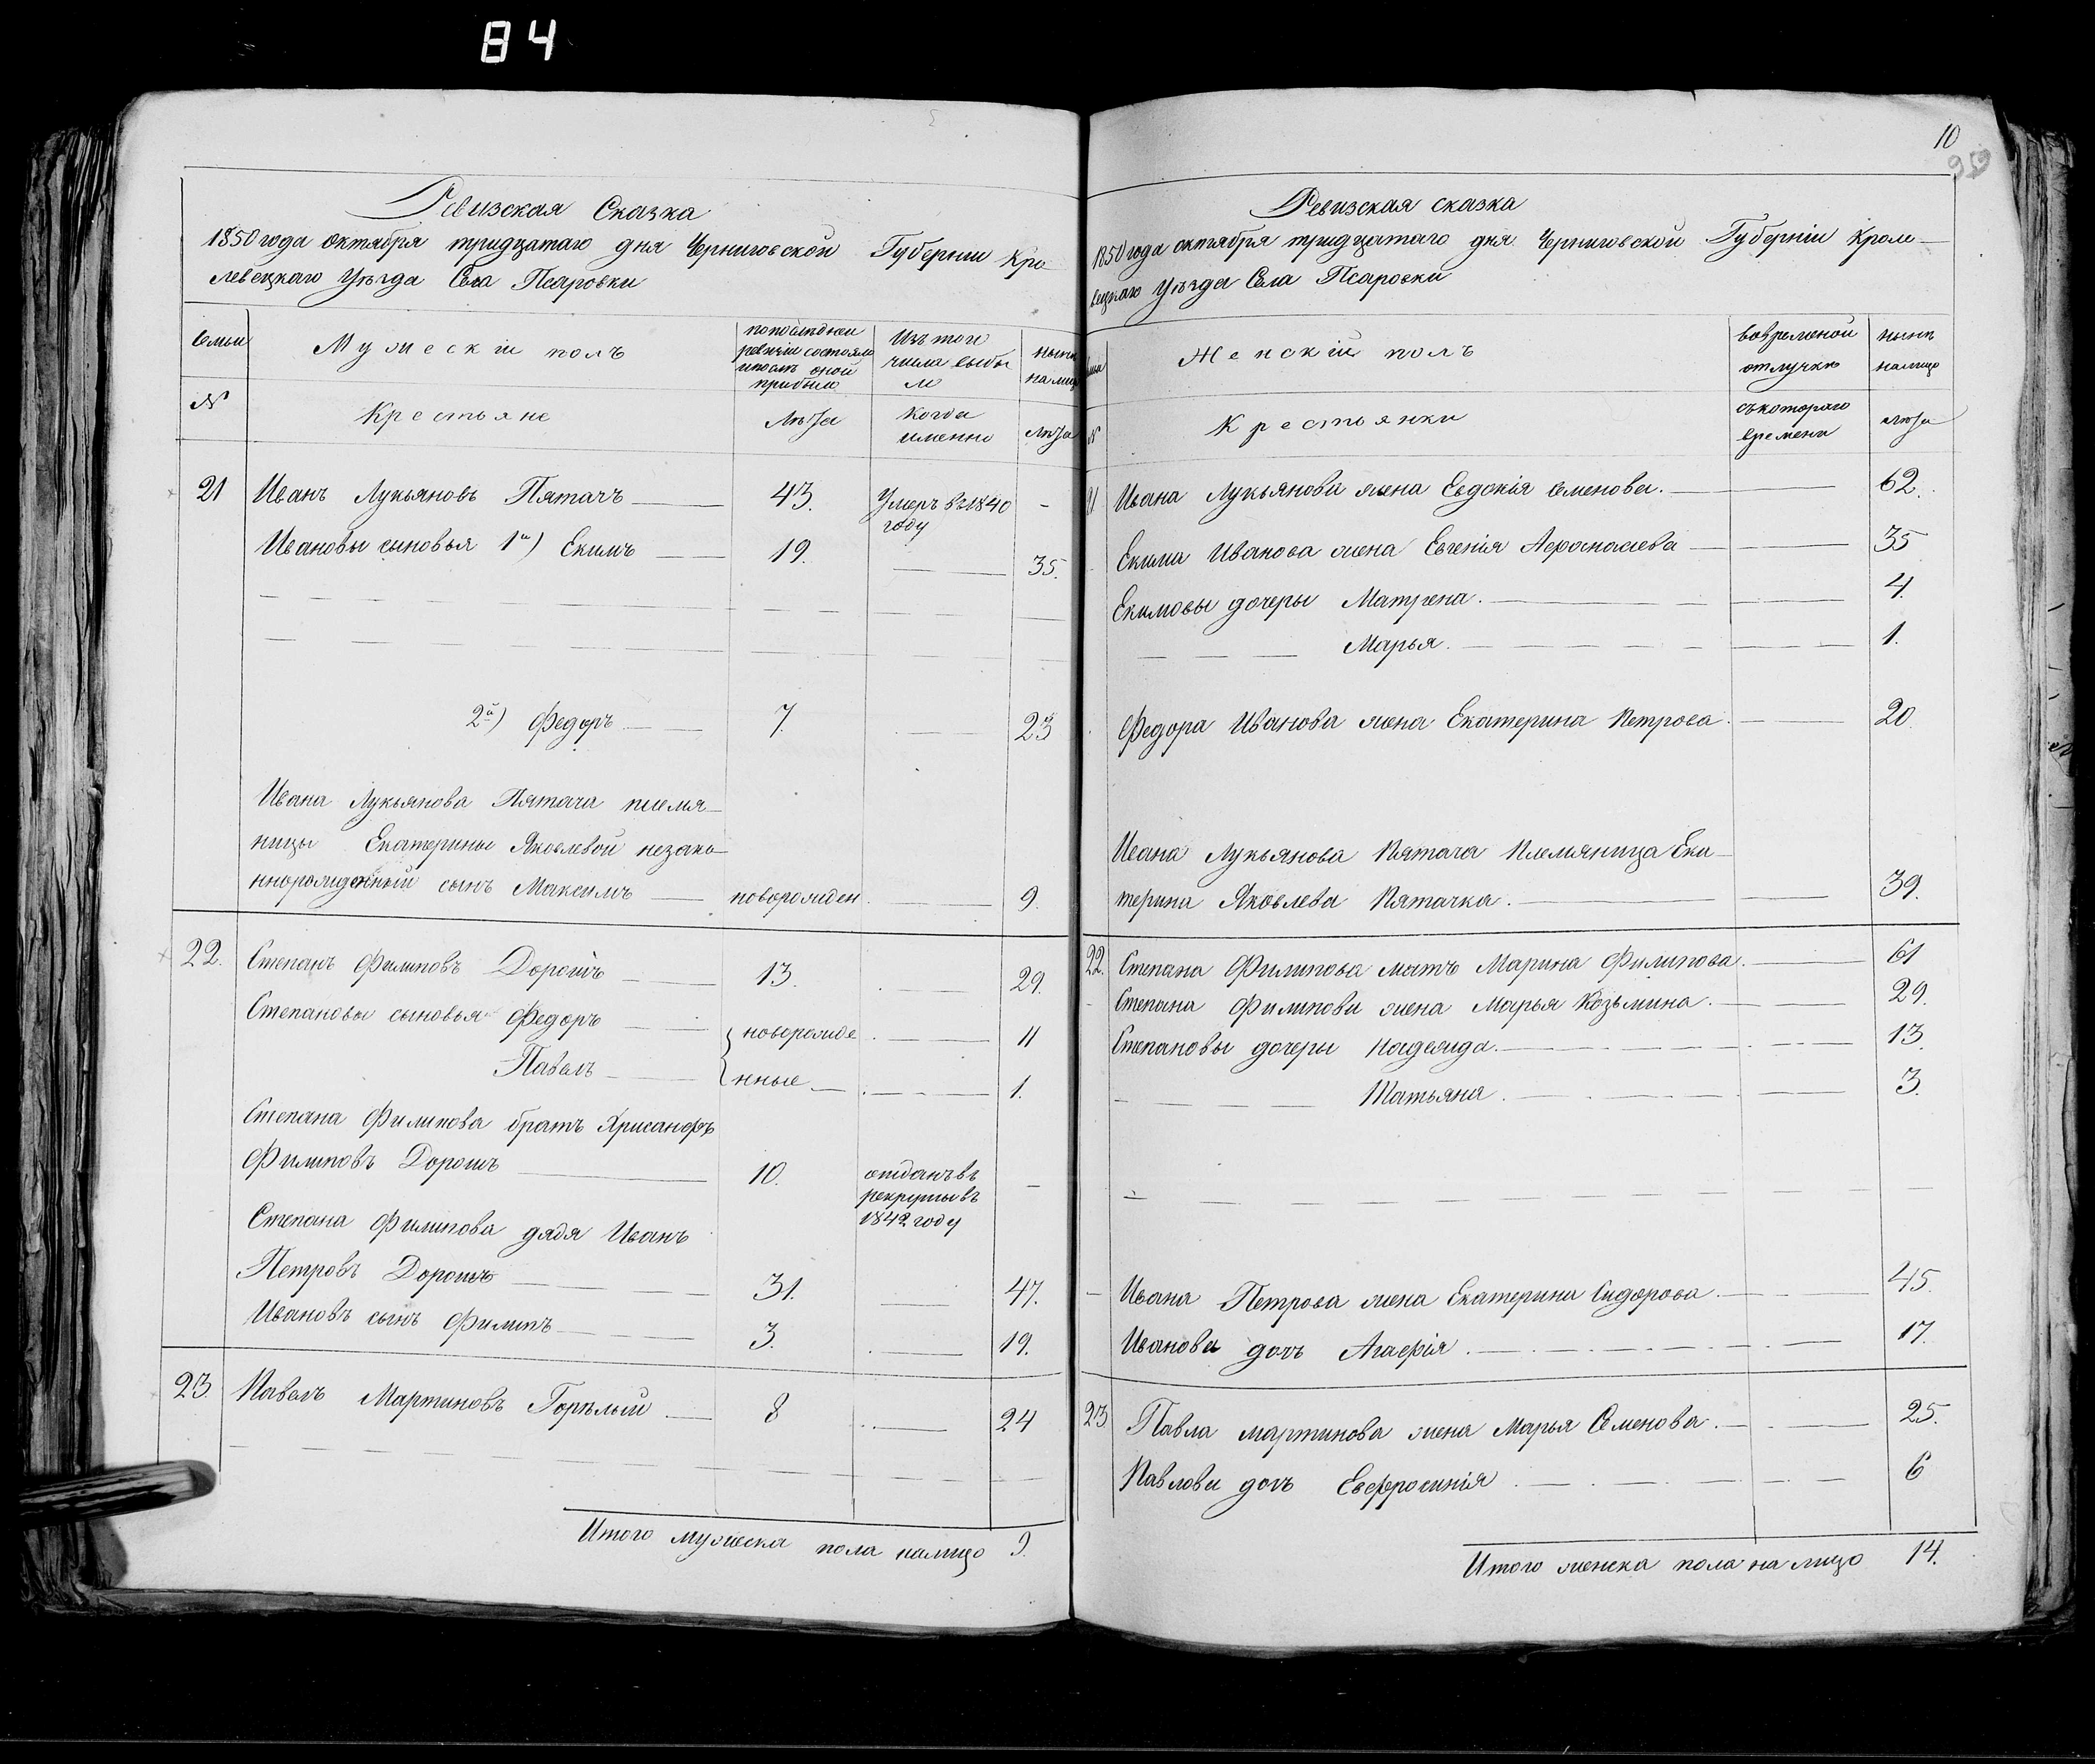 84
Ревизская Сказка
1850 года октября тридцатаго дня Черниговской Губернии Кро
левецкаго Уѣзда Села Псаровки
Семьи
Мужескій полъ
по последнеи
ревизіи состояло
и послѣ оной
прибыло
Изъ того
числа выбы
ло
нынѣ
на лицо
№
Крестьяне
Лѣта
когда
именно
Лѣта
21 Иванъ Лукьяновъ Пятачъ 43. Умеръ въ 1840 -
году
Ивановы сыновья 1й) Екимъ 19. 35.
2й) Федоръ 7. 23
Ивана Лукьянова Пятача племя
ницы Екатерины Яковлевой незако
ннорожденный сынъ Максимъ новорожден. 9.
22. Степанъ Филиповъ Дорошъ 13. 29.
Степановы сыновья Федоръ новорожде 11
Павелъ нные 1.
Степана Филипова братъ Хрисанфъ
Филиповъ Дорошъ 10. отданъ въ -
рекруты въ
1842 году
Степана Филипова дядя Иванъ
Петровъ Дорошъ 31. 47.
Ивановъ сынъ Филипъ 3. 19.
23. Павелъ Мартиновъ Горѣлый 8 24
Итого мужеска пола налицо 9.
10
Ревизская сказка
1850 года октября тридцатаго дня Черниговской Губерніи Кроле
вецкаго Уѣзда Села Псаровки
Женскій полъ
во временой
отлучкѣ
нынѣ
налицо
№
Крестьянки
съ котораго
времени
лѣта
21 Ивана Лукьянова жена Евдокія Семенова. 62.
Екима Иванова жена Евгенія Афонасиева 35
Екимовы дочеры Матрена. 4.
Марья. 1.
Федора Иванова жена Екатерина Петрова. 20.
Ивана Лукьянова Пятача Племяница Ека
терина Яковлева Пятачка. 39.
22. Степана Филипова мать Марина Филипова. 61
Степана Филипова жена Марья Козьмина. 29.
Степановы дочеры Надежда. 13.
Татьяна. 3.
Ивана Петрова жена Екатерина Сидорова. 45.
Иванова дочь Агафія. 17.
23 Павла мартинова жена Марья Семенова. 25.
Павлова дочь Евфросинія 6
Итого женска пола на лицо 14.